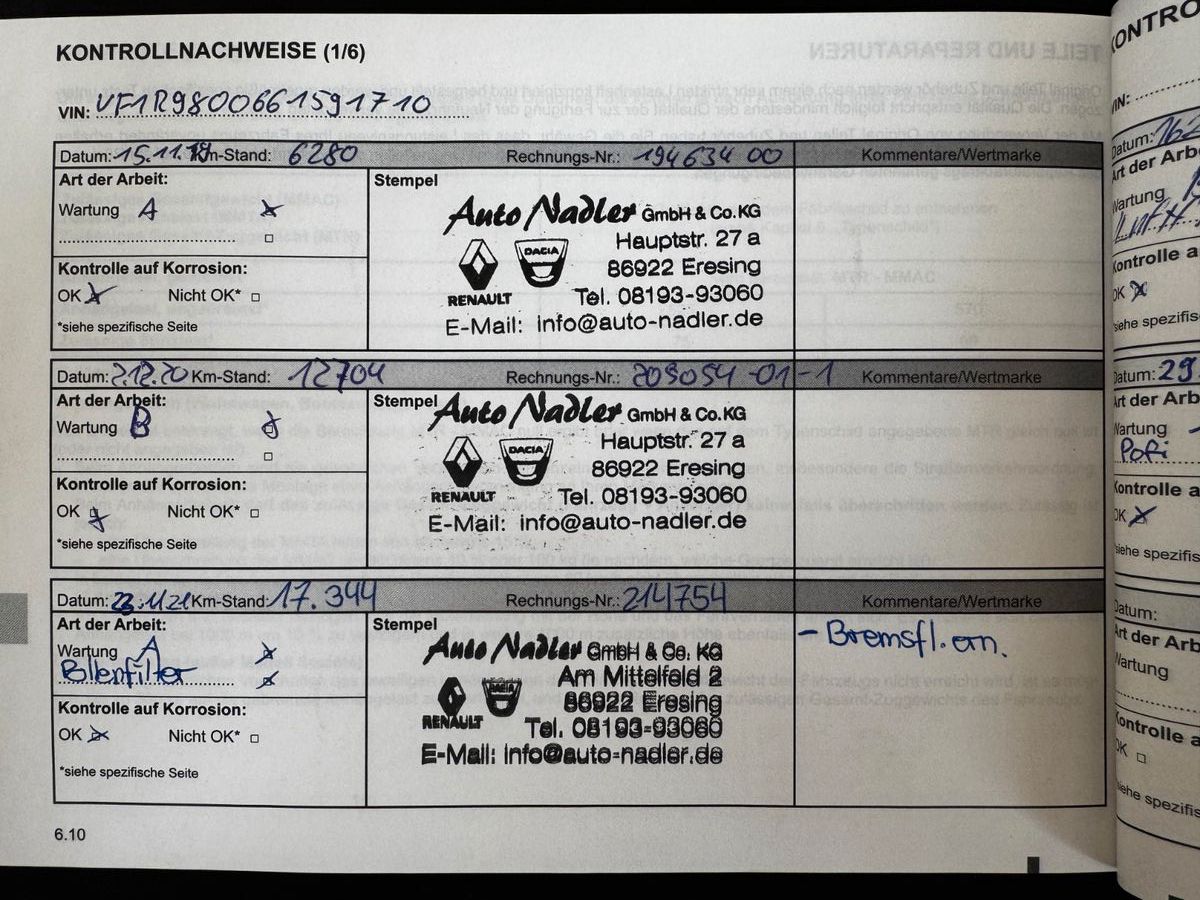 KONTROLLNACHWEISE (1/6)
VIN: VF1R9800661591710
Datum: 15.11.19 Km-Stand: 6280 Rechnungs-Nr.: 194634 00 Kommentare/Wertmarke
Art der Arbeit: Stempel
Wartung A
Auto Nadler GmbH & Co.KG
Hauptstr. 27 a
DACIA
86922 Eresing
RENAULT Tel. 08193-93060
E-Mail: info@auto-nadler.de
Kontrolle auf Korrosion:
OK Nicht OK*
*siehe spezifische Seite
Datum: 2.12.20 Km-Stand: 12704 Rechnungs-Nr.: 209054-01-1 Kommentare/Wertmarke
Art der Arbeit: Stempel
Wartung B
Auto Nadler GmbH & Co.KG
Hauptstr. 27 a
DACIA
86922 Eresing
RENAULT Tel. 08193-93060
E-Mail: info@auto-nadler.de
Kontrolle auf Korrosion:
OK Nicht OK*
*siehe spezifische Seite
Datum: 23.11.21 Km-Stand: 17.344 Rechnungs-Nr.: 214754 Kommentare/Wertmarke
Art der Arbeit: Stempel
Wartung A
Pollenfilter
Auto Nadler GmbH & Co. KG
Am Mittelfeld 2
DACIA
86922 Eresing
RENAULT Tel. 08193-93060
E-Mail: info@auto-nadler.de
- Bremsfl. ern.
Kontrolle auf Korrosion:
OK Nicht OK*
*siehe spezifische Seite
6.10
KONTRO
VIN:
Datum: 
Art der Arb
Wartung
Kontrolle a
OK
*siehe spezifis
Datum: 29.
Art der Arb
Wartung
Pofi
Kontrolle a
OK
*siehe spezifis
Datum:
Art der Arb
Wartung
Kontrolle a
OK
*siehe spezifis